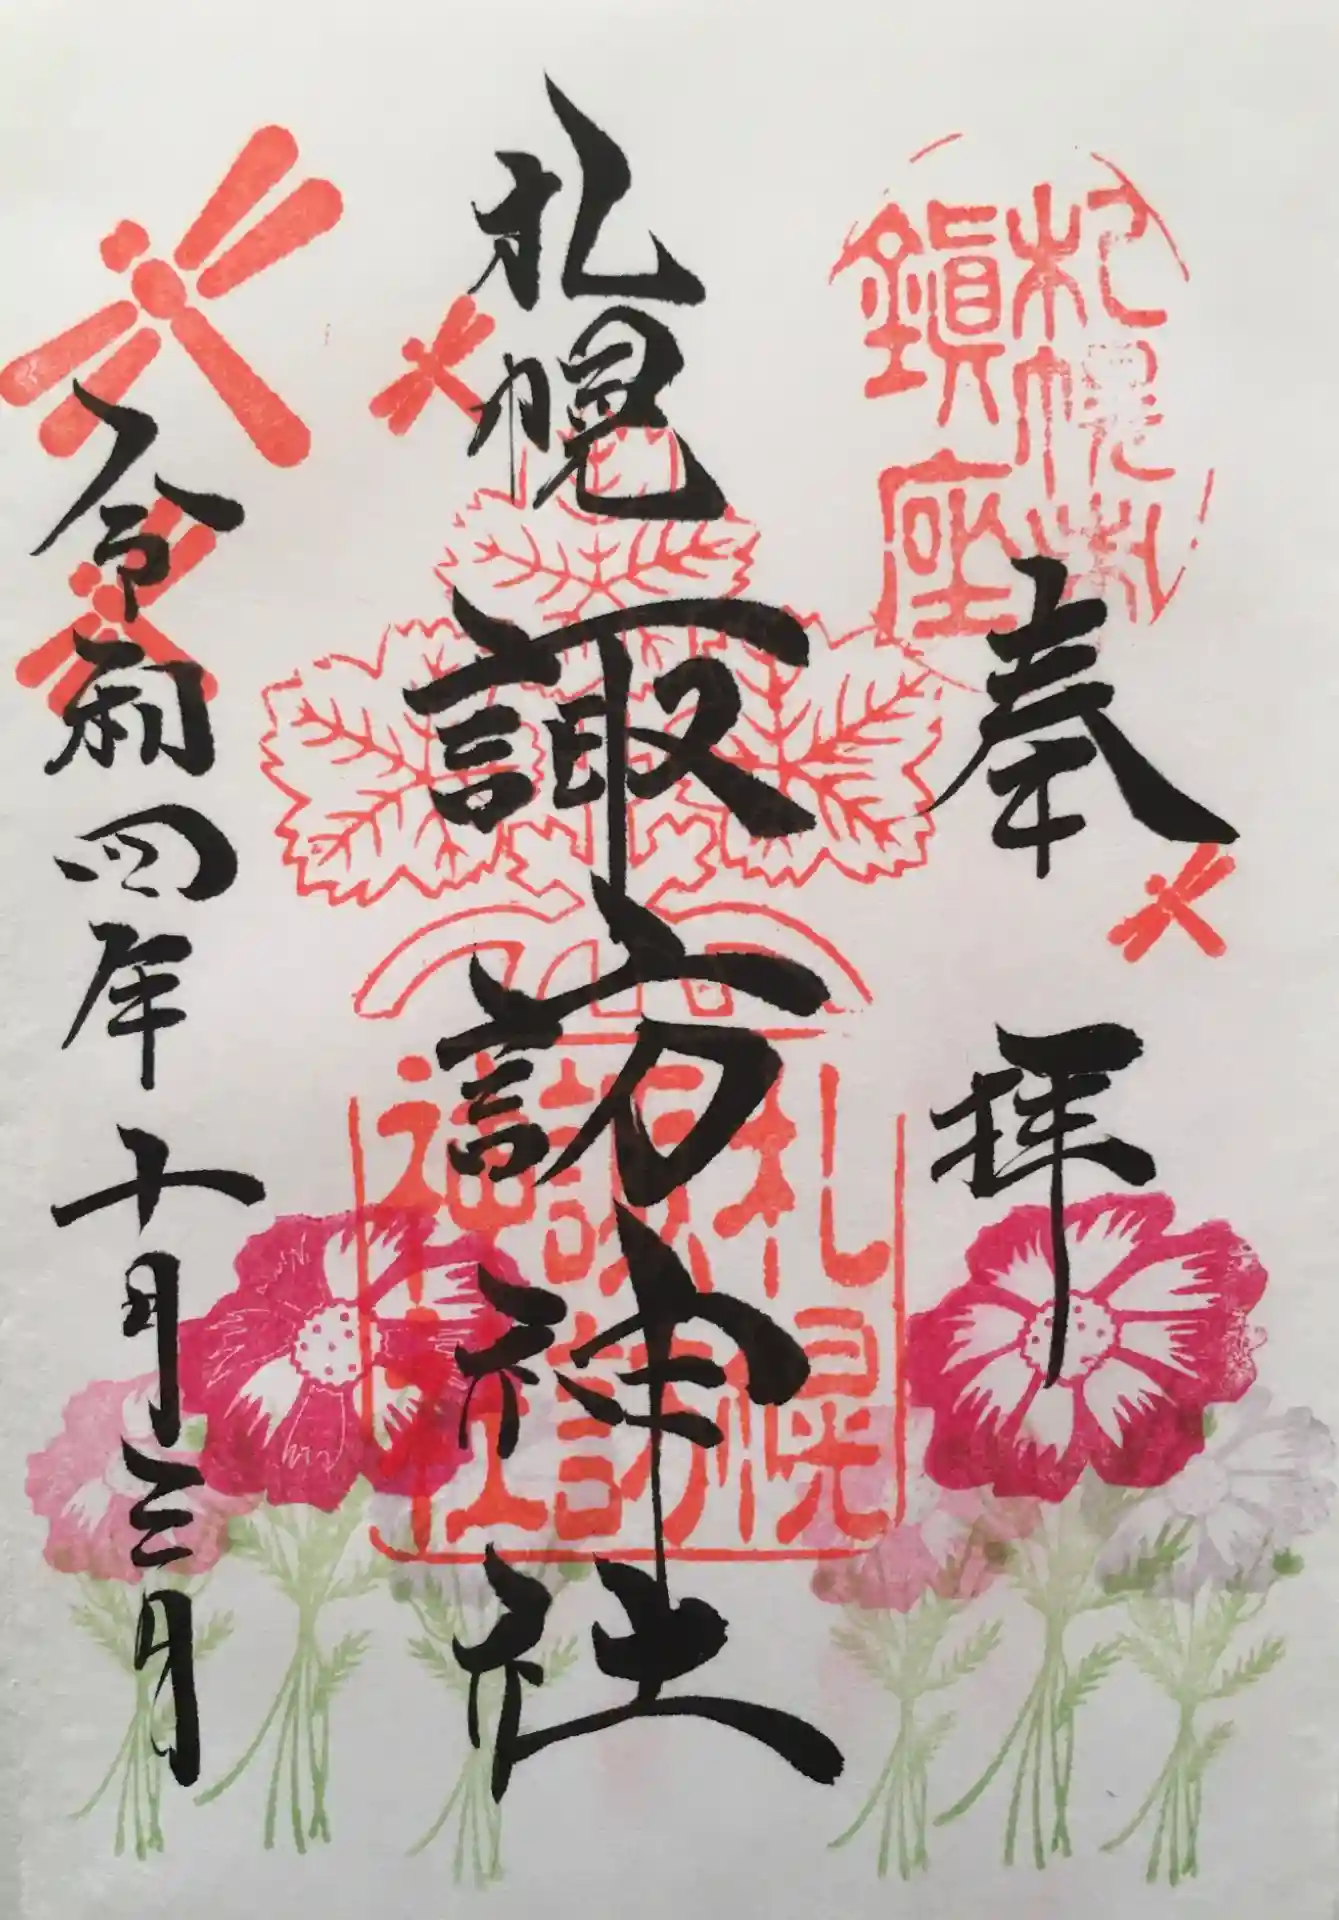 札幌
鎮座
奉拝
札幌諏訪神社
札幌
諏訪
神社
令和四年十月三日